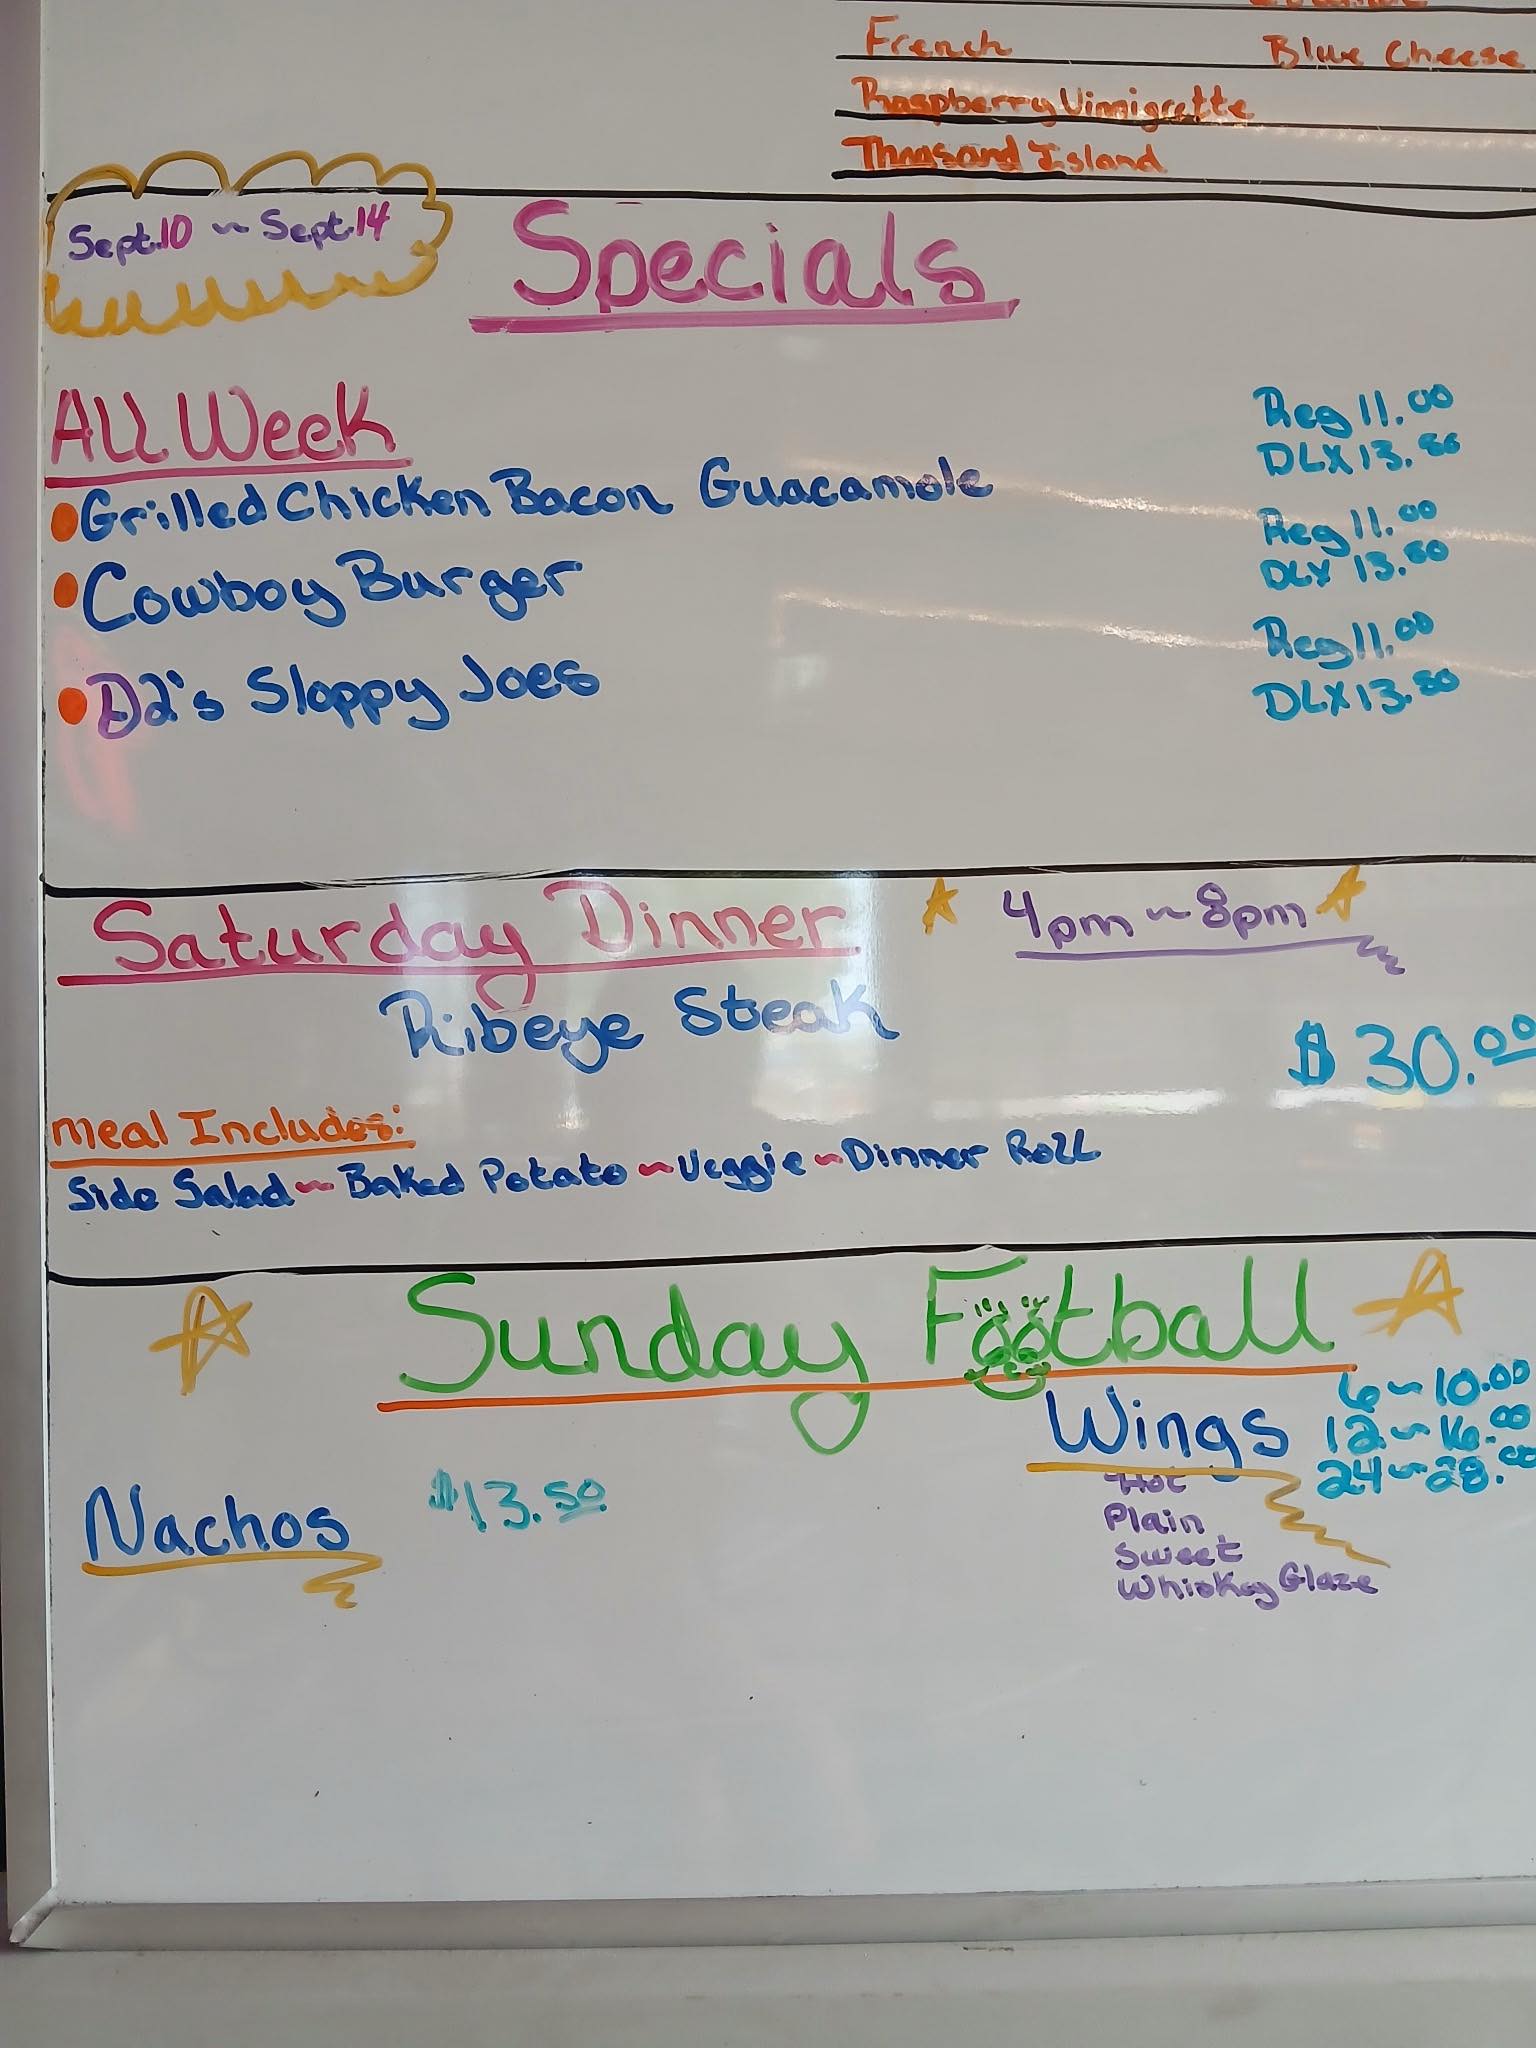 French Blue Cheese
Raspberry Vinnigrette
Thousand Island
Sept.10 ~ Sept.14
Specials
All Week
Reg 11.00
DLX 13.50
• Grilled Chicken Bacon Guacamole
Reg 11.00
DLX 13.50
• Cowboy Burger
Reg 11.00
DLX 13.50
• DJ's Sloppy Joes
Saturday Dinner 4pm ~ 8pm
Ribeye Steak
$30.00
Meal Includes:
Side Salad ~ Baked Potato ~ Veggie ~ Dinner Roll
Sunday Football
Wings
6 ~ 10.00
12 ~ 16.00
24 ~ 28.00
Hot
Plain
Sweet
Whiskey Glaze
Nachos $13.50